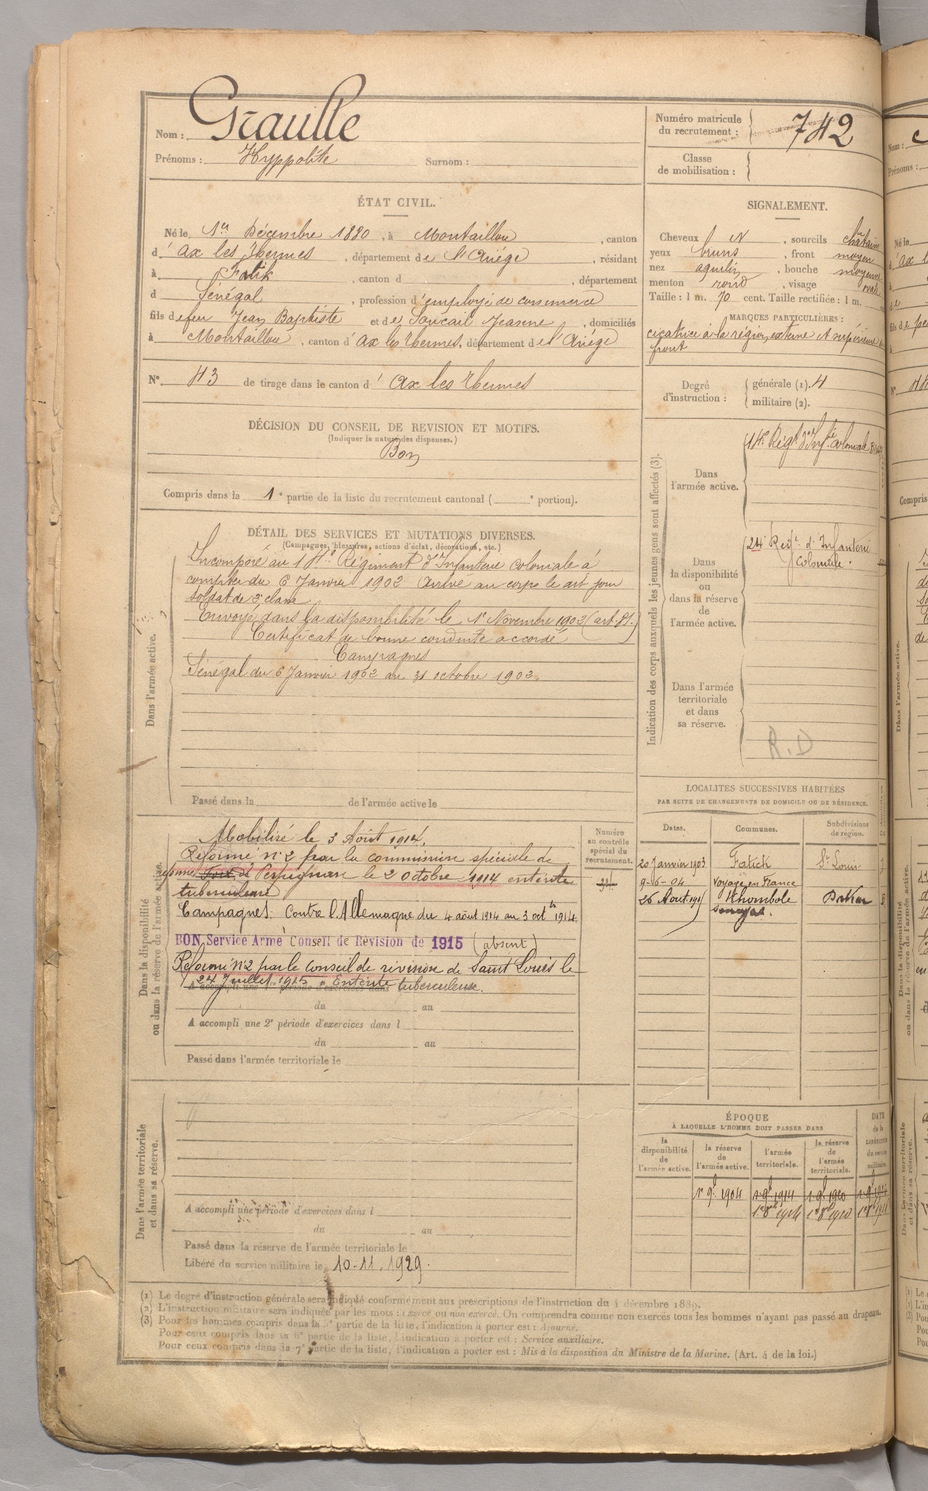 Nom : Graulle
Prénoms : Hyppolite Surnom :
Numéro matricule du recrutement : 742
Classe de mobilisation :
ÉTAT CIVIL.
Né le 1er Décembre 1880, à Montaillou, canton
d' Ax les Thermes, département de l'Ariège, résidant
à Fatik, canton d , département
d Sénégal, profession d'employé de commerce
fils de feu Jean Baptiste et de Jeanne, domiciliés
à Montaillou, canton d'Ax les Thermes, département de l'Ariège
N° 43 de tirage dans le canton d' Ax les Thermes
SIGNALEMENT.
Cheveux N, sourcils châtains
yeux bruns, front moyen
nez aquilin, bouche moyenne
menton rond, visage ovale
Taille : 1 m. 70 cent. Taille rectifiée : 1 m.
MARQUES PARTICULIÈRES :
cicatrice à la région externe
front
Degré d'instruction : générale (1). 4
militaire (2).
DÉCISION DU CONSEIL DE REVISION ET MOTIFS.
(Indiquer la nature des dispenses.)
Bon
Compris dans la 1e partie de la liste du recrutement cantonal ( e portion).
DÉTAIL DES SERVICES ET MUTATIONS DIVERSES.
(Campagnes, blessures, actions d'éclat, décorations, etc.)
Dans l'armée active.
Incorporé au Régiment d'Infanterie coloniale à
compter du 6 Janvier 1902 Arrivé au corps le dit jour
soldat de 2e classe
Envoyé dans la disponibilité le 1er Novembre 1902
Certificat de bonne conduite accordé
Campagnes
Sénégal du 6 Janvier 1902 au 31 octobre 1902.
Passé dans la de l'armée active le
Indication des corps auxquels les jeunes gens sont affectés (3).
Dans l'armée active.
14e Régt d'Infie coloniale
Dans la disponibilité ou dans la réserve de l'armée active.
24 Régt d'Infanterie
Coloniale.
Dans l'armée territoriale et dans sa réserve.
R.D
Dans la disponibilité ou dans la réserve de l'armée active.
Mobilisé le 3 Août 1914.
Réformé n°2 par la commission spéciale de
Perpignan le 2 Octobre 1914 entérite
tuberculeuse
Campagnes : Contre l'Allemagne du 4 août 1914 au 3 octbre 1914
BON, Service Armé Conseil de Révision de 1915 (absent)
Réformé n°2 par le conseil de révision de Saint Louis le
24 Juillet 1915 " Entérite tuberculeuse.
A accompli une 1e période d'exercices dans
du au
A accompli une 2e période d'exercices dans l
du au
Passé dans l'armée territoriale le
Numéro au contrôle spécial du recrutement.
LOCALITÉS SUCCESSIVES HABITÉES
PAR SUITE DE CHANGEMENTS DE DOMICILE OU DE RÉSIDENCE.
Dates. Communes. Subdivisions de région.
20 Janvier 1903 Fatick St Louis
9-6-04 Voyage en France
26 Août 191 Khombole Dakar
Sénégal.
ÉPOQUE
À LAQUELLE L'HOMME DOIT PASSER DANS
la disponibilité de l'armée active. la réserve de l'armée active. l'armée territoriale. la réserve de l'armée territoriale.
1er 9bre 1904 1er 9bre 1914 1er 9bre 1920
Dans l'armée territoriale et dans sa réserve.
A accompli une période d'exercices dans l
du au
Passé dans la réserve de l'armée territoriale le
Libéré du service militaire le 10.11.1929.
(1) Le degré d'instruction générale sera indiqué conformément aux prescriptions de l'instruction du 4 décembre 1889.
(2) L'instruction militaire sera indiquée par les mots : exercé ou non exercé. On comprendra comme non exercés tous les hommes n'ayant pas passé au drapeau.
(3) Pour les hommes compris dans la 5e partie de la liste, l'indication à porter est : Ajourné.
Pour ceux compris dans la 6e partie de la liste, l'indication à porter est : Service auxiliaire.
Pour ceux compris dans la 7e partie de la liste, l'indication à porter est : Mis à la disposition du Ministre de la Marine. (Art. 4 de la loi.)